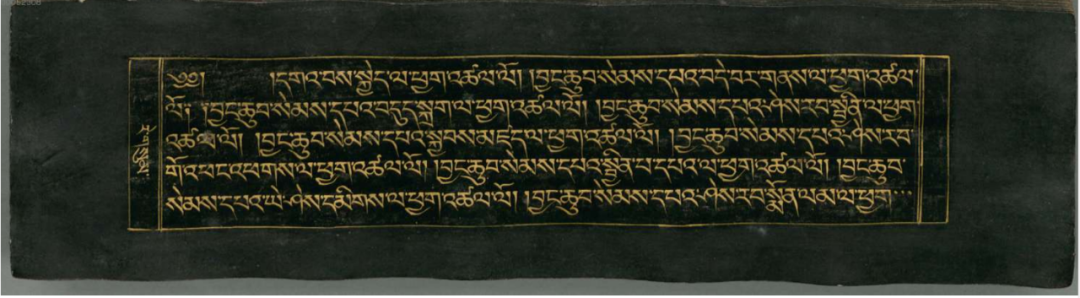 ༄༅། །དགའ་བས་སྐྱེད་ལ་ཕྱག་འཚལ་ལོ། །བྱང་ཆུབ་སེམས་དཔའ་བདེ་བར་གནས་ལ་ཕྱག་འཚལ་
ལོ། །བྱང་ཆུབ་སེམས་དཔའ་བདུད་སྐྲག་ལ་ཕྱག་འཚལ་ལོ། །བྱང་ཆུབ་སེམས་དཔའ་ཤེས་རབ་སྦྱིན་ལ་ཕྱག་
འཚལ་ལོ། །བྱང་ཆུབ་སེམས་དཔའ་སྐྱབས་མཛད་ལ་ཕྱག་འཚལ་ལོ། །བྱང་ཆུབ་སེམས་དཔའ་ཤེས་རབ་
གོ་ཕ་འཕགས་ལ་ཕྱག་འཚལ་ལོ། །བྱང་ཆུབ་སེམས་དཔའ་སྦྱིན་པ་དཔའ་ལ་ཕྱག་འཚལ་ལོ། །བྱང་ཆུབ་
སེམས་དཔའ་ཡེ་ཤེས་དམིགས་ལ་ཕྱག་འཚལ་ལོ། །བྱང་ཆུབ་སེམས་དཔའ་ཤེས་རབ་སྒྲོན་ལ་ཕྱག་